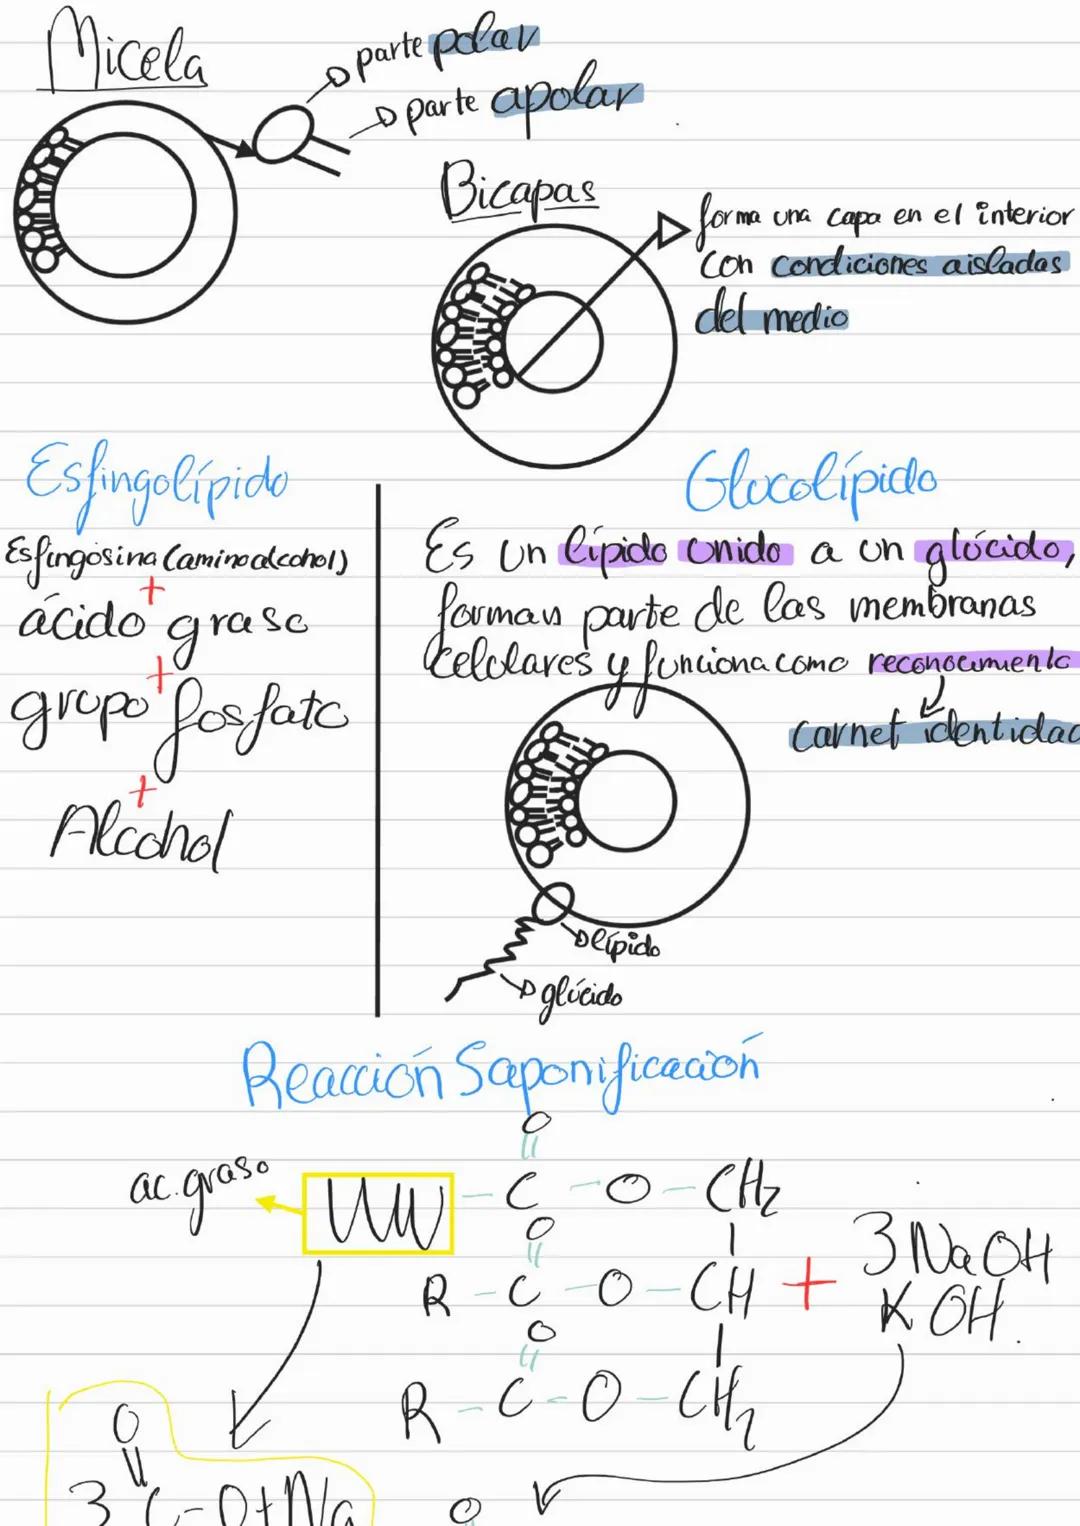 Micela
parte polar
parte apolar
Bicapas
forma una capa en el interior
con condiciones aisladas
del medio
Esfingolípido
Esfingosina (aminoalcohol)
+
ácido graso
+
grupo fosfato
+
Alcohol
Glucolípido
Es un lípido unido a un glúcido,
forman parte de las membranas
celulares y funciona como reconocimiento
carnet identidad
lípido
glúcido
Reacción Saponificación
O
ac. graso
- C - O - CH2
O
R - C - O - CH + 3 NaOH
KOH.
O
R - C - O - CH2
O
3 C - O + Na
O